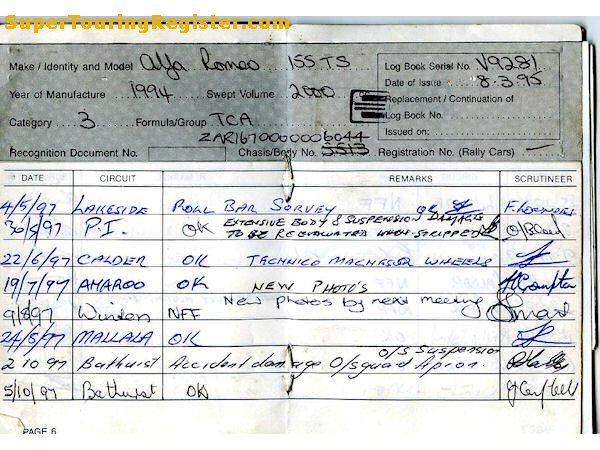 SuperTouringRegister.com
Make / Identity and Model Alfa Romeo 155 TS Log Book Serial No. V9281
Date of Issue 8.3.95
Year of Manufacture 1994 Swept Volume 2000 Replacement / Continuation of
Log Book No.
Category 3 Formula/Group TCA
Issued on:
ZAR1670000006044
Recognition Document No. Chassis/Body No. 5513 Registration No. (Rally Cars) —
DATE CIRCUIT REMARKS SCRUTINEER
4/5/97 LAKESIDE ROLL BAR SURVEY OK
30/5/97 P.I. OK EXTENSIVE BODY & SUSPENSION DAMAGE
TO BE REEVALUATED WHEN STRIPPED
22/6/97 CALDER OK TECHNICO MAGNESIUM WHEELS
19/7/97 AMAROO OK NEW PHOTO'S
New photos by next meeting
9/8/97 Winton NFF
24/5/97 MALLALA OK
O/S Suspension
2 10 97 Bathurst Accident damage O/S guard Apron.
5/10/97 Bathurst OK
PAGE 6